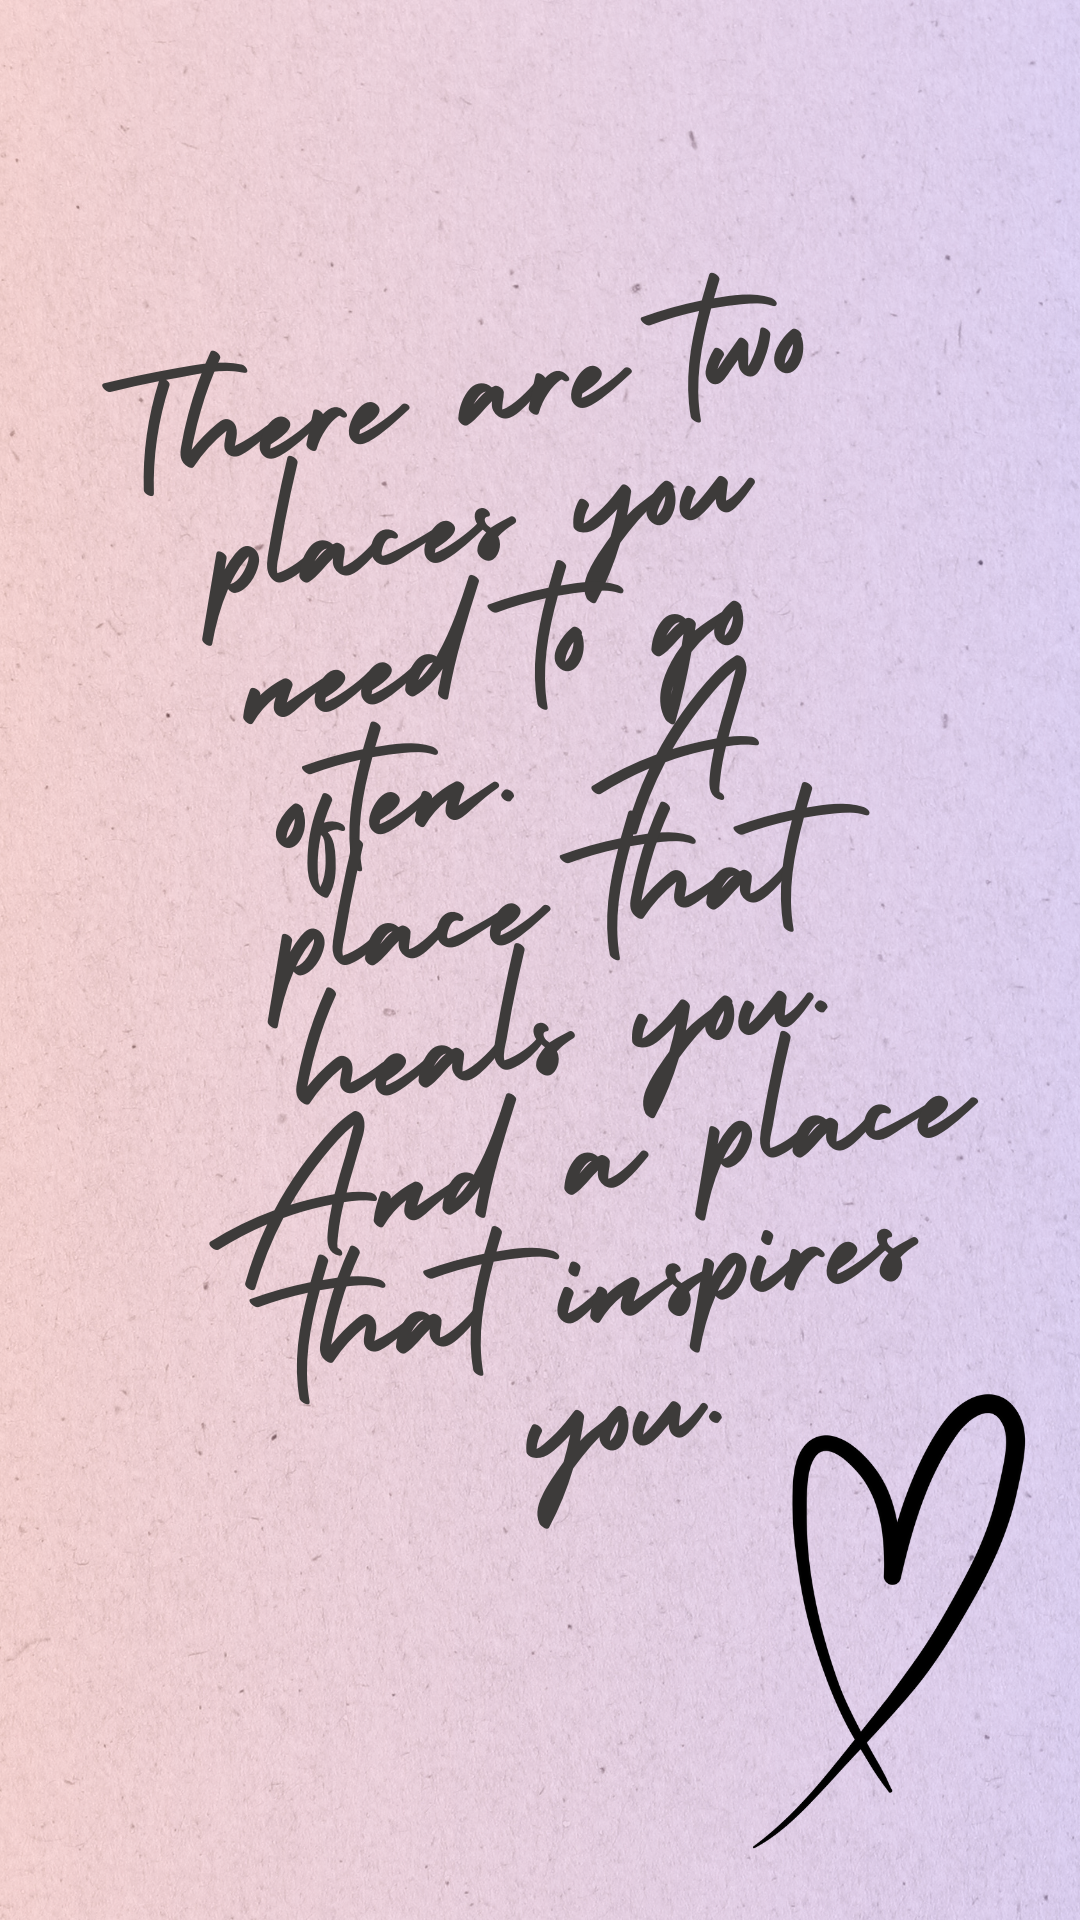 There are two
places you
need to go
often. A
place that
heals you.
And a place
that inspires
you.